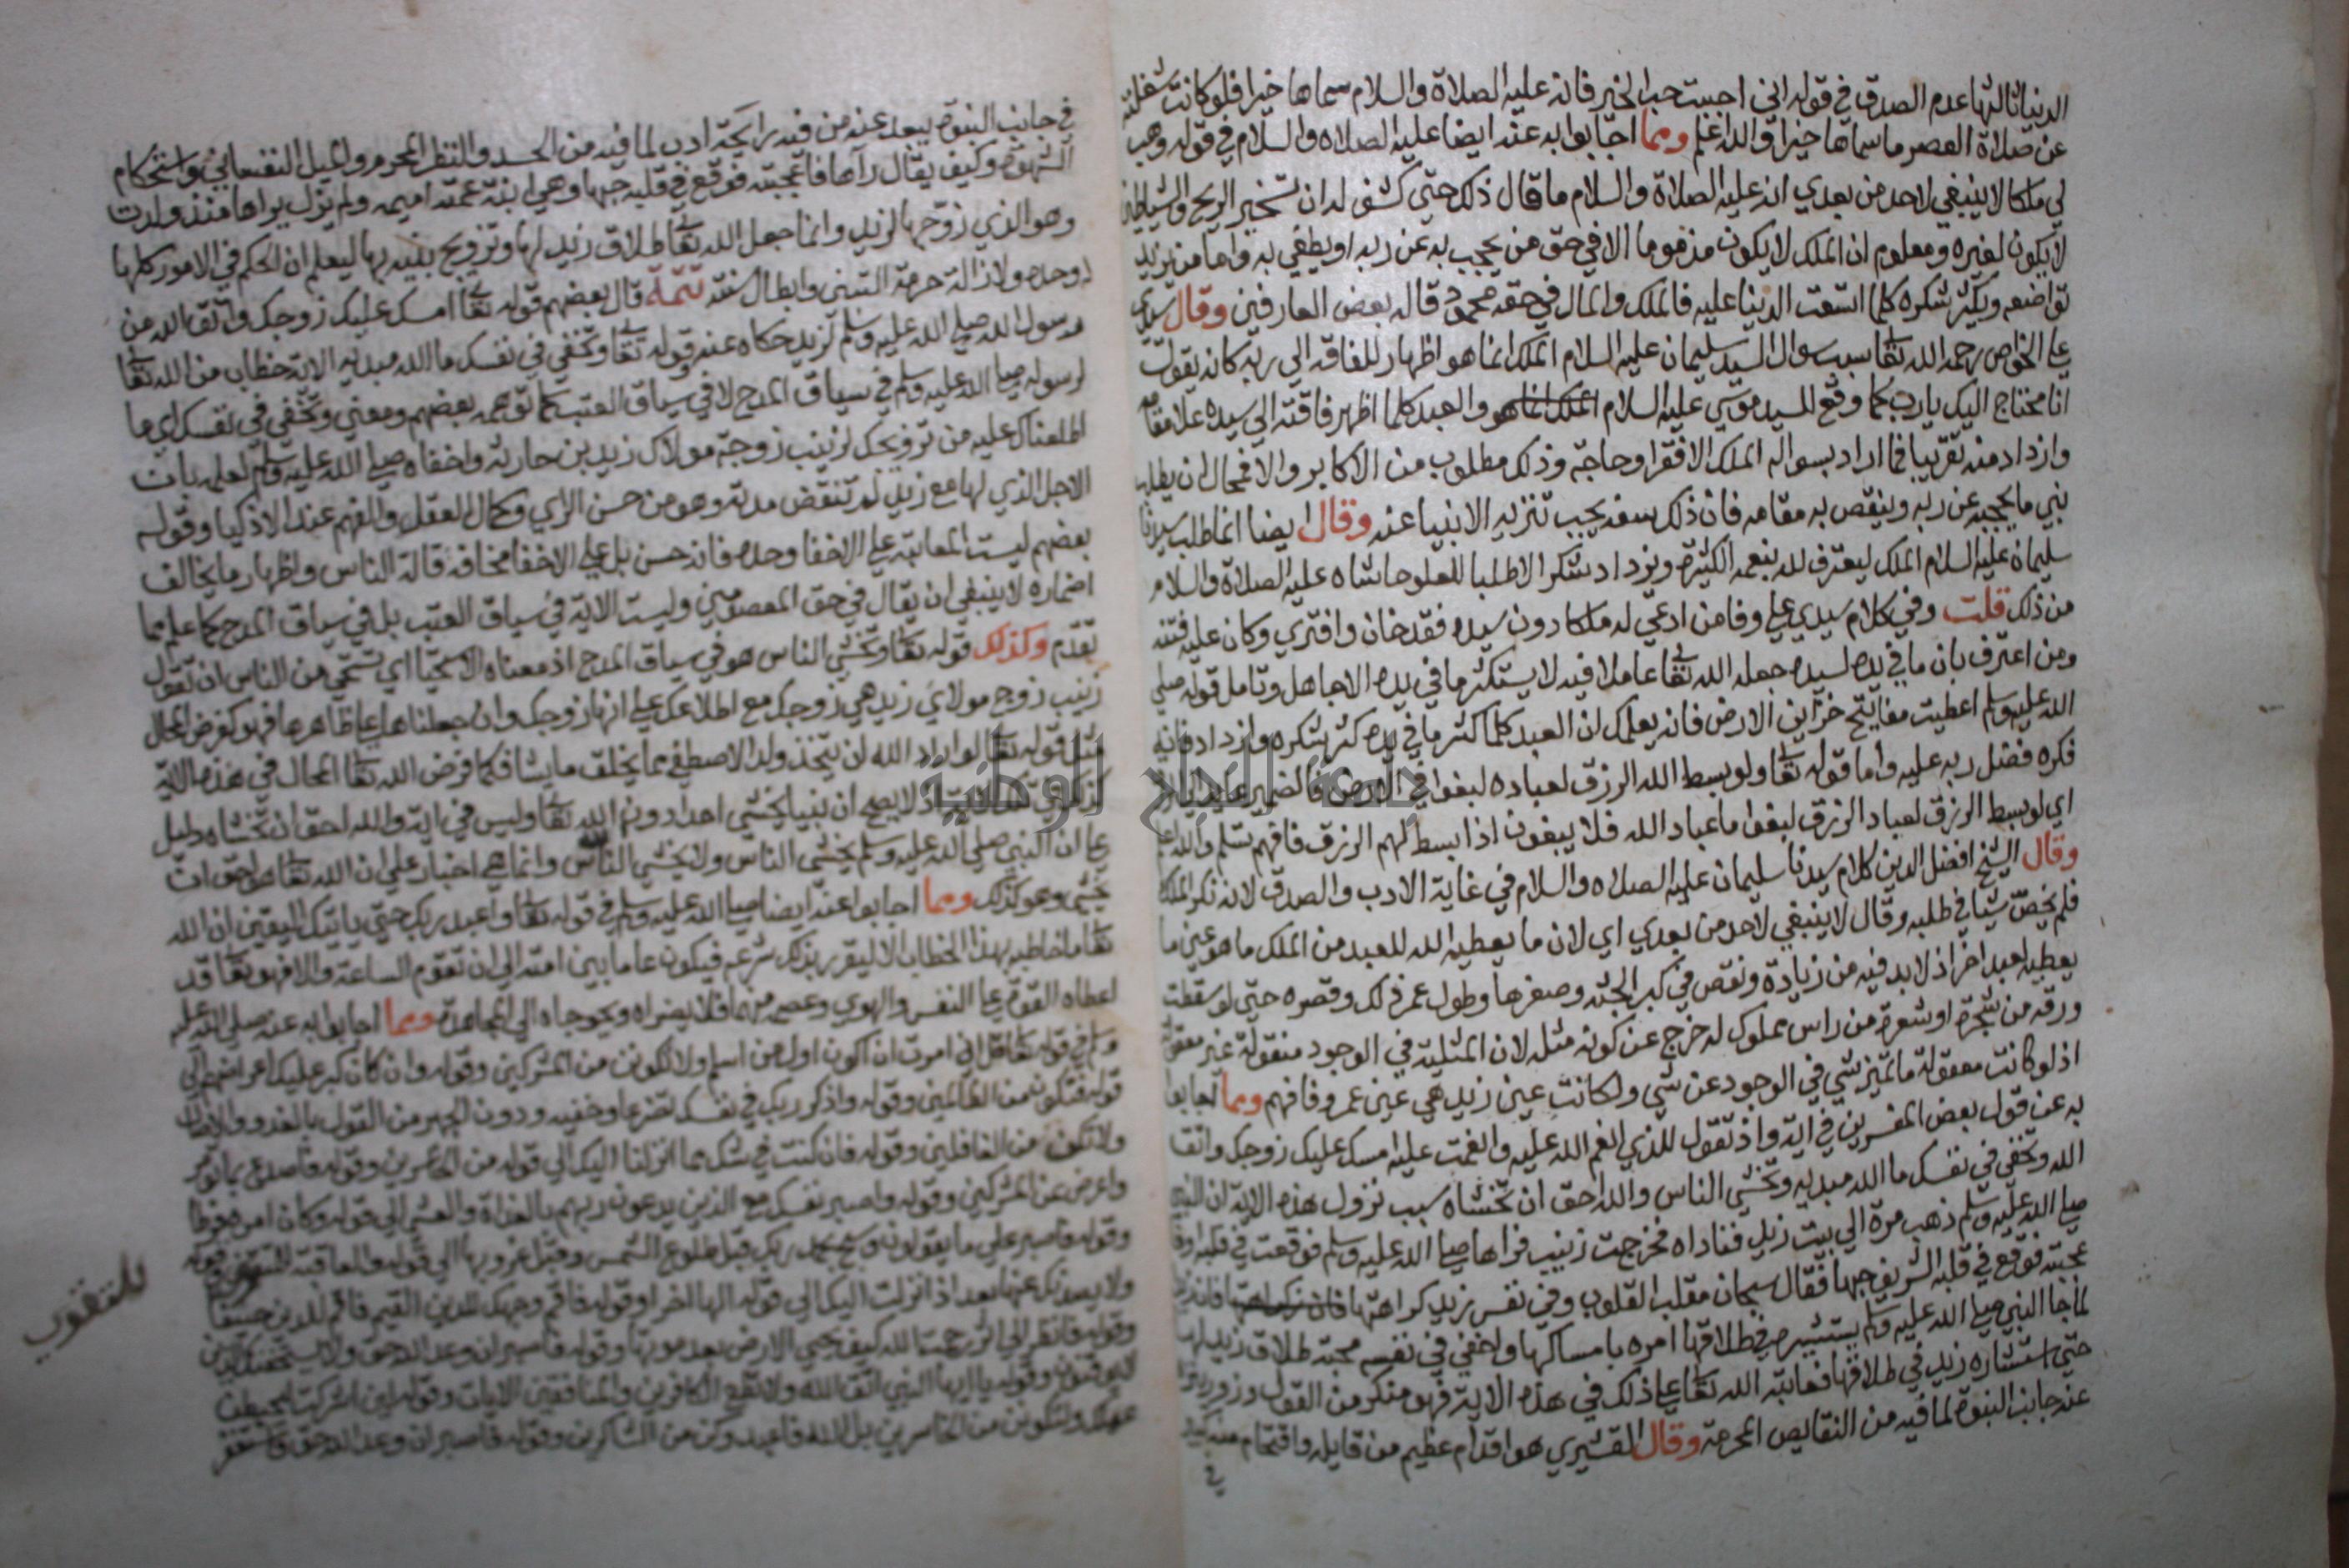 الدنيا ثالثها عدم الصدق في قوله اني احببت حب الخير فانه عليه الصلاة والسلام سماها خيرا فلو كانت شغلته
عن صلاة العصر ما سماها خيرا والله اعلم ومما اجابوا به عنه ايضا عليه الصلاه والسلام في قوله وهب
لي ملكا لا ينبغي لاحد من بعدي انه عليه الصلاة والسلام ما قال ذلك حتي كشف له ان تسخير الريح والشياطين
لا يكون لغيره ومعلوم ان الملك لا يكون مذموما الا في حق من يحجب به عن ربه او يطغي به واما من يزيد
تواضعه ويكثر شكره كلما اتسعت الدنيا عليه فالملك والمال في حقه محمود قاله بعض العارفين وقال سيدي
علي الخواص رحمه الله تعا سبب سوال السيد سليمان عليه السلام الملك انما هو اظهار للفاقه الي ربه كانه يقول
انا محتاج اليك يارب كما وقع للسيد موسي عليه السلام والعبد كلما اظهر فاقته الي سيده علا مقامه
وازداد منه تقريبا فما اراد بسواله الملك الا فقرا وحاجة وذلك مطلوب من الاكابر والا فمحال ان يطلب
نبي ما يحجبه عن ربه وينقص به مقامه فان ذلك سفه يجب تنزيه الانبيا عنه وقال ايضا انما طلب سيدنا
سليمان عليه السلام الملك ليعترف لله بنعمه الكثيرة ويزداد شكرا لا طلبا للعلو حاشاه عليه الصلاة والسلام
من ذلك قلت وفي كلام سيدي علي وفا من ادعي له ملكا دون سيده فقد خان وافتري وكان عليه فتنه
ومن اعترف بان ما في يده لسيده جعله الله تعا عاملا فيه لا يستكثر ما في يده الا جاهل وتامل قوله صلي
الله عليه وسلم اعطيت مفاتيح خزاين الارض فانه يعلمك ان العبد كلما كثر ما في يده كثر شكره وازداد
فكره فضل ربه عليه واما قوله تعا ولو بسط الله الرزق لعباده لبغوا في الارض فالضمير عايد الي
اي لو بسط الرزق لعباد الرزق لبغوا ما عباد الله فلا يبغون اذا بسط لهم الرزق فافهم تسلم والله
وقال الشيخ افضل الدين كلام سيدنا سليمان عليه الصلاه والسلام في غاية الادب والصدق لانه نكر الملك
فلم يخص شيا في طلبه وقال لا ينبغي لاحد من بعدي اي لان ما يعطيه الله للعبد من الملك ما هو عين ما
يعطيه لعبد اخر اذ لا بد فيه من زيادة ونقص في كبر الجثه وصغرها وطول عمر ذلك وقصره حتي لو سقطت
ورقه من شجرة او شعرة من راس مملوك له خرج عن كونه مثله لان المثلية في الوجود منقولة غير معقولة
اذ لو كانت معقولة ما تميز شي في الوجود عن شي ولكانت عين زيد هي عين عمرو فافهم ومما اجابوا
به عن قول بعض المفسرين في اية واذ تقول للذي انعم الله عليه وانعمت عليه امسك عليك زوجك واتق
الله وتخفي في نفسك ما الله مبديه وتخشي الناس والله احق ان تخشاه سبب نزول هذه الاية ان النبي
صلي الله عليه وسلم ذهب مرة الي بيت زيد فناداه فخرجت زينب فراها صلي الله عليه وسلم فوقعت في قلبه
عجبته فوقع في قلبه الشريف حبها فقال سبحان مقلب القلوب وفي نفس زيد كراهتها
لما جا النبي صلي الله عليه وسلم يستشيره في طلاقها امره بامساكها واخفي في نفسه محبة طلاق زيد لها
حتي استشاره زيد في طلاقها فعاتبه الله تعا علي ذلك في هذه الاية فهو منكر من القول وزور
عنه جانب النبوة لما فيه من النقايص المحرمة وقال القشيري هو اقدام عظيم من قايله واقتحام
في
في جانب النبوة يبعد عنه من فيه رايحة ادب لما فيه من الحسد والنظر المحرم والميل النفساني واستحكام
الشهوة وكيف يقال رآها فاعجبته فوقع في قلبه حبها وهي ابنة عمته اميمه ولم يزل يراها منذ ولدت
وهو الذي زوجها لزيد وانما جعل الله تعا طلاق زيد لها وتزويج نبيه بها ليعلم ان الحكم في الامور كلها
له وحده ولازالة حرمة التبني وابطال سنته تتمة قال بعضهم قوله تعا امسك عليك زوجك واتق الله من
رسول الله صلي الله عليه وسلم لزيد حكاه عنه قوله تعا وتخفي في نفسك ما الله مبديه الاية خطاب من الله تعا
لرسوله صلي الله عليه وسلم في سياق المدح لا في سياق العتب كما توهمه بعضهم ومعني وتخفي في نفسك اي ما
اطلعناك عليه من تزويجك لزينب زوجة مولاك زيد بن حارثة واخفاه صلي الله عليه وسلم لعلمه بان
الاجل الذي لها مع زيد لم تنقض مدته وهو من حسن الراي وكمال العقل والفهم عند الاذكيا وقوله
بعضهم ليست المعاتبة علي الاخفا وحده فانه حسن بل علي الاخفا مخافة قالة الناس واظهار ما يخالف
اضماره لا ينبغي ان يقال في حق المعصومين وليست الاية في سياق العتب بل في سياق المدح كما علم مما
تقدم وكذلك قوله تعا وتخشي الناس هو في سياق المدح اذ معناه الاستحيا اي تستحي من الناس ان تقول
زينب زوج مولاي زيد هي زوجك مع اطلاعك علي انها زوجك وان جعلناها علي ظاهرها فهو كفرض المحال
مثل قوله تعا لو اراد الله ان يتخذ ولدا لاصطفي مما يخلق ما يشا فكما فرض الله تعا المحال في هذه الاية
لا يصح ان نبيا يخشي احدا دون الله تعا وليس في اية والله احق ان تخشاه دليل
علي ان النبي صلي الله عليه وسلم يخشي الناس ولا يخشي الناس وانما هي اخبار علي ان الله تعا هو احق ان
يخشي وهو كذلك ومما اجابوا عنه ايضا صلي الله عليه وسلم في قوله تعا واعبد ربك حتي ياتيك اليقين ان الله
تعا ما خاطبه بهذا الخطاب الا ليقرر بذلك شرعه فيكون عاما بين امته الي ان تقوم الساعة والا فهو تعا قد
اعطاه القوة علي النفس والهوي وعصمه منهما فلا يضراه ويحوجاه الي المجاهدة ومما اجابوا به عنه صلي الله عليه
وسلم في قوله تعا قل اني امرت ان اكون اول من اسلم ولا تكونن من المشركين وقوله وان كان كبر عليك اعراضهم الي
قوله فتكونن من الظالمين وقوله واذكر ربك في نفسك تضرعا وخفيه ودون الجهر من القول بالغدو والاصال
ولا تكون من الغافلين وقوله فان كنت في شك مما انزلنا اليك الي قوله من الممترين وقوله فاصدع بما تومر
واعرض عن المشركين وقوله واصبر نفسك مع الذين يدعون ربهم بالغداة والعشي الي قوله وكان امره فرطا
وقوله فاصبر علي ما يقولون وسبح بحمد ربك قبل طلوع الشمس وقبل غروبها الي قوله والعاقبة للتقوي وقوله
ولا يصدنك عنها بعد اذ انزلت اليك الي قوله الها اخر وقوله فاقم وجهك للدين القيم فاقم للدين حنيفا
وقوله فانظر الي اثر رحمة الله كيف يحيي الارض بعد موتها وقوله فاصبر ان وعد الله حق ولا يستخفنك الذين
لا يوقنون وقوله يا ايها النبي اتق الله ولا تطع الكافرين والمنافقين الايات وقوله لين اشركت ليحبطن
عملك ولتكونن من الخاسرين بل الله فاعبد وكن من الشاكرين وقوله فاصبر ان وعد الله حق واستغفر
جامعة النجاح الوطنية